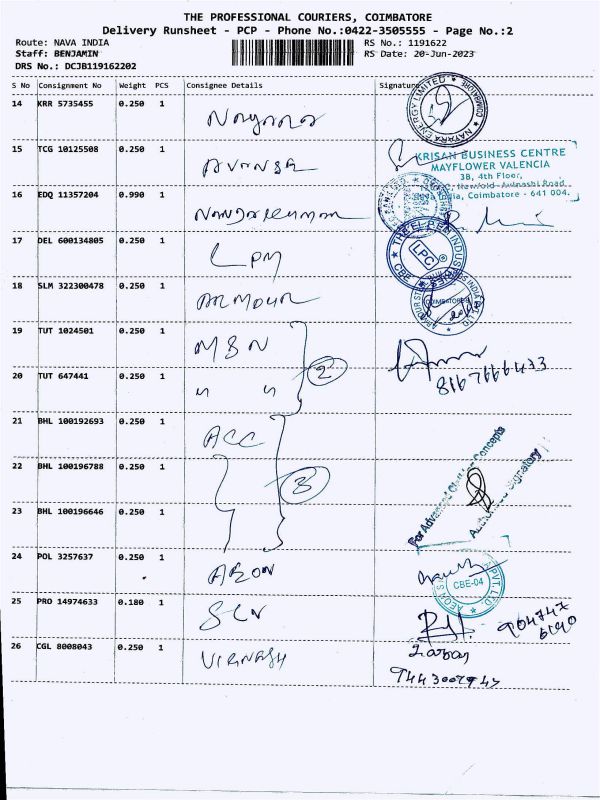 THE PROFESSIONAL COURIERS, COIMBATORE
Delivery Runsheet - PCP - Phone No.:0422-3505555 - Page No.:2
Route: NAVA INDIA RS No.: 1191622
Staff: BENJAMIN RS Date: 20-Jun-2023
DRS No.: DCJB119162202
S No Consignment No Weight PCS Consignee Details Signature
14 KRR 5735455 0.250 1 Nayara
NAYARA ENERGY LIMITED
COIMBATORE
15 TCG 10125508 0.250 1
KRISAN BUSINESS CENTRE
MAYFLOWER VALENCIA
38, 4th Floor,
New/old-Avinashi Road
Nava India, Coimbatore - 641 004.
16 EDQ 11357204 0.990 1 Nandakumar
17 DEL 600134805 0.250 1 LPM
LPC
CBE
18 SLM 322300478 0.250 1 ARMOUR
COIMBATORE
19 TUT 1024501 0.250 1 MSN
2
20 TUT 647441 0.250 1 " "
21 BHL 100192693 0.250 1 ACC
22 BHL 100196788 0.250 1
3
For Advanced Concepts
Authorised Signatory
23 BHL 100196646 0.250 1
24 POL 3257637 0.250 1 AEON
CBE-04
25 PRO 14974633 0.180 1
904747
6190
26 CGL 8008043 0.250 1